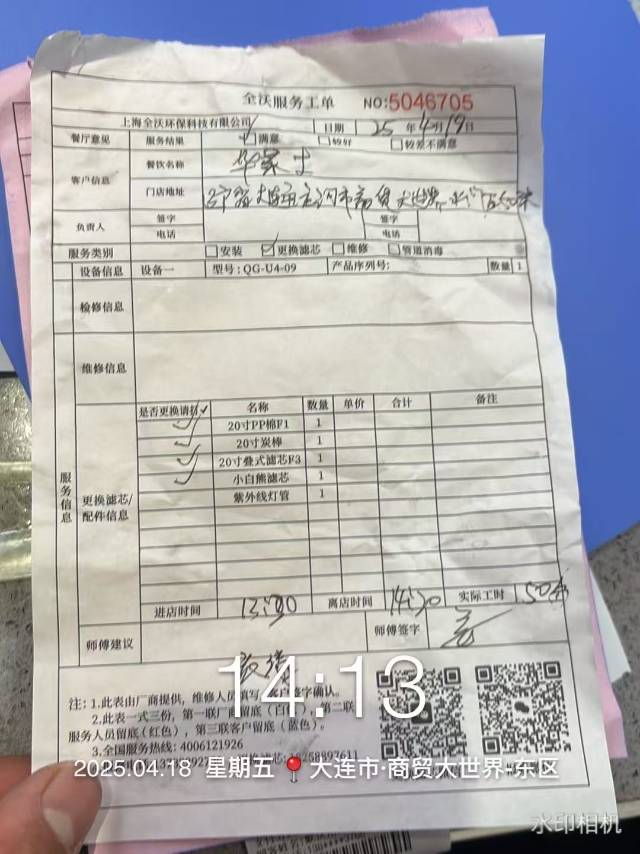 全沃服务工单 NO:5046705
上海全沃环保科技有限公司 日期 25 年 4 月 19 日
餐厅意见 服务结果 ✓满意 □较好 □较差不满意
客户信息 餐饮名称 华莱士
门店地址
负责人 签字 签字
电话 电话
服务类别 □安装 ✓更换滤芯 □维修 □管道消毒
服务信息
设备信息 设备一 型号:QG-U4-09 产品序列号: 数量 1
检修信息
维修信息
更换滤芯/配件信息
是否更换请打✓ 名称 数量 单价 合计 备注
✓ 20寸PP棉F1 1
✓ 20寸炭棒 1
✓ 20寸叠式滤芯F3 1
✓ 小白熊滤芯 1
紫外线灯管 1
进店时间 13:30 离店时间 14:30 实际工时
师傅建议 师傅签字
14:13
注: 1.此表由厂商提供, 维修人员填写, 字确认。
2.此表一式三份, 第一联厂商留底(白色), 第二联
服务人员留底(红色), 第三联客户留底(蓝色)。
3.全国服务热线: 4006121926
2025.04.18 星期五 大连市·商贸大世界·东区
水印相机